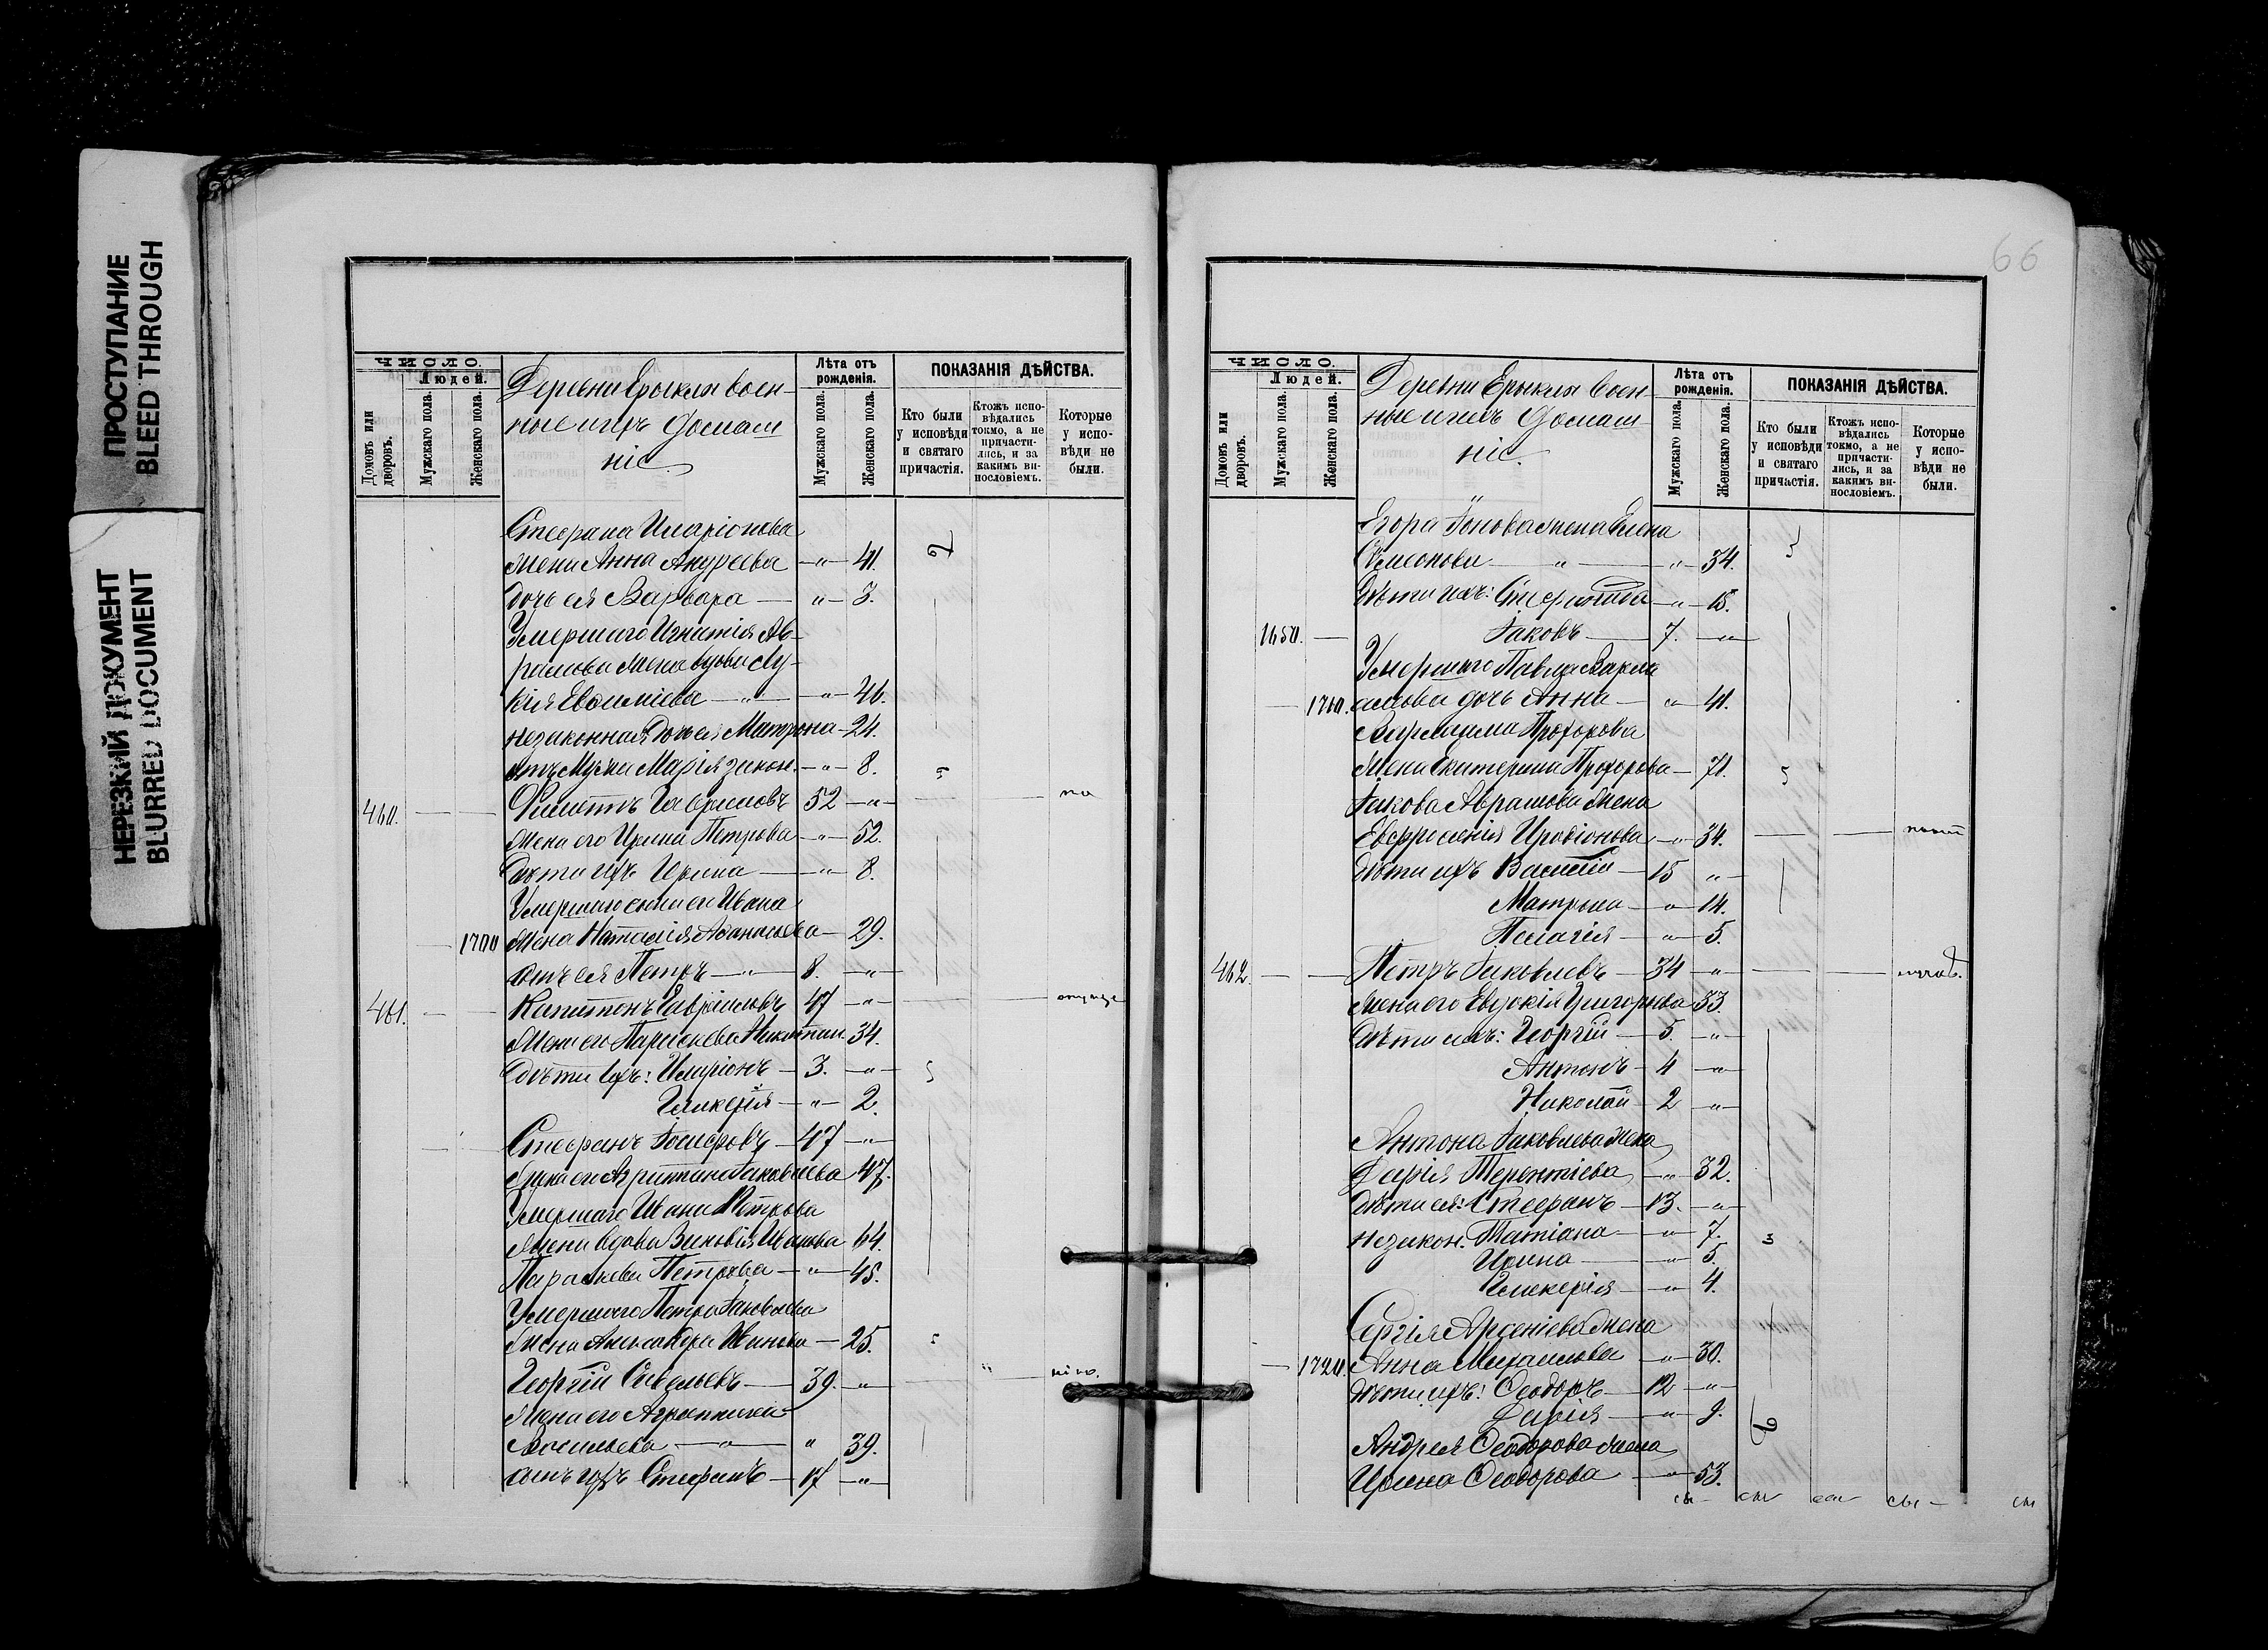 ПРОСТУПАНИЕ
BLEED THROUGH
НЕРЕЗКИЙ ДОКУМЕНТ
BLURRED DOCUMENT
ЧИСЛО.
Людей.
Домовъ или дворовъ.
Мужскаго пола.
Женскаго пола.
Деревни Ерыклы воен-
ные и ихъ домаш
ніе
Лѣта отъ рожденія.
Мужскаго пола.
Женскаго пола.
ПОКАЗАНІЯ ДѢЙСТВА.
Кто были у исповѣди и святаго причастія.
Ктожъ испо-вѣдались токмо, а не причасти-лись, и за какимъ ви-нословіемъ.
Которые у испо-вѣди не были.
Стефана Иларіонова
жена Анна Андреева — " — 41.
дочь ея Варвара — " — 3.
Умершаго Игнатія Ав-
рамова жена вдова Лу-
кія Евѳиміева — " — " — 46.
незаконная дочь ея Матрона — 24.
отъ мужа Марія закон. — " — 8.
460. — — Филиппъ Гавриловъ 52 — " —
жена его Ирина Петрова — " — 52.
дѣти ихъ Ирина — " — 8.
Умершаго сына его Ивана
1700 жена Наталія Аѳанасьева — 29.
сынъ ея Петръ — " — 8. — " —
461. — — Капитонъ Гавриловъ 47 — " —
Жена его Параскева Никитин. 34.
дѣти ихъ: Иларіонъ — 3. — " —
Гликерія — " — 2.
Стефанъ — 47 — " —
Жена его Агриппина Іаковлева 47.
Умершаго Ивана Петрова
жена вдова Зиновія Иванова 64.
Параскева Петрова — " — 45.
Умершаго Петра Іаковлева
жена Александра Иванова — 25.
Георгій Савельевъ — 39. — " —
Жена его Агриппина
Васильева — " — " 39.
сынъ ихъ Стефанъ — 17 — " —
66
ЧИСЛО.
Людей.
Домовъ или дворовъ.
Мужскаго пола.
Женскаго пола.
Деревни Ерыклы воен-
ные и ихъ домаш
ніе.
Лѣта отъ рожденія.
Мужскаго пола.
Женскаго пола.
ПОКАЗАНІЯ ДѢЙСТВА.
Кто были у исповѣди и святаго причастія.
Ктожъ испо-вѣдались токмо, а не причасти-лись, и за какимъ ви-нословіемъ.
Которые у испо-вѣди не были.
Егора Іонова жена Елена
Симеонова — " — " — 34.
Дѣти ихъ: — " — 15.
1650. — Іаковъ — 7. — " —
Умершаго Павла Варла
1710. амова дочь Анна — " — 41.
Варлаама Прохорова
Жена Екатерина Прохорова — 71.
Іакова Аврамова жена
Евфросинія Иродіонова — " — 34.
дѣти ихъ Василій — 15 " —
Матрона — " — 14.
Пелагія — " — 5.
462. — — Петръ Іаковлевъ — 34 — " —
Жена его Евдокія Григорьева 33.
дѣти ихъ: Георгій — 5. — " —
Антонъ — 4 — " —
Николай — 2 — " —
Антона Іаковлева жена
Дарія Терентіева — " — 32.
Дѣти ея: Стефанъ — 13. — " —
незакон. Татіана — " — 7.
Ирина — " — 5.
Гликерія — " — 4.
Сергія Арсеніева жена
1720. Анна Михаилова — " — 30.
дѣти ихъ: Ѳеодоръ — 12 — " —
Дарія — " — 9.
Андрея Ѳеодорова жена
Ирина Ѳеодорова — " — 53.